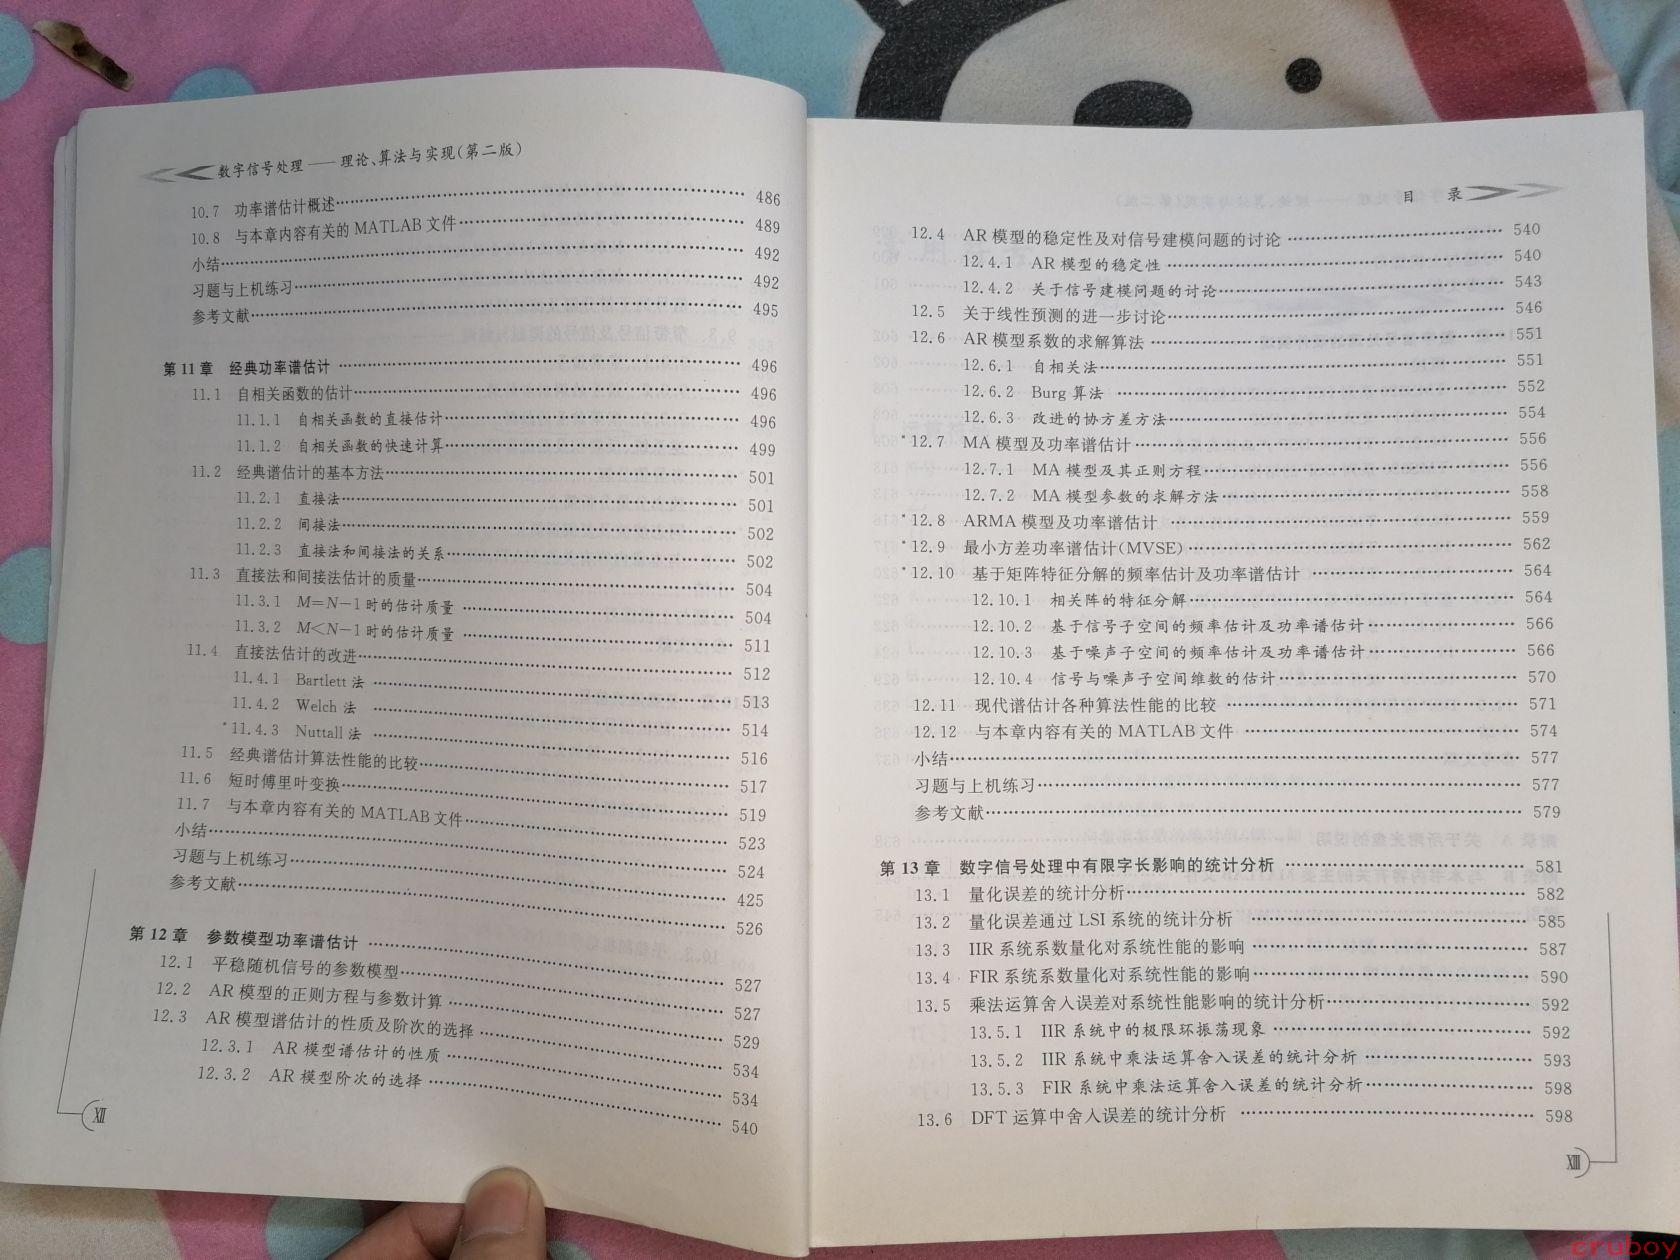 数字信号处理——理论、算法与实现(第二版)
10.7 功率谱估计概述…… 486
10.8 与本章内容有关的 MATLAB 文件…… 489
小结…… 492
习题与上机练习…… 492
参考文献…… 495
第 11 章 经典功率谱估计…… 496
11.1 自相关函数的估计…… 496
11.1.1 自相关函数的直接估计…… 496
11.1.2 自相关函数的快速计算…… 499
11.2 经典谱估计的基本方法…… 501
11.2.1 直接法…… 501
11.2.2 间接法…… 502
11.2.3 直接法和间接法的关系…… 502
11.3 直接法和间接法估计的质量…… 504
11.3.1 M=N-1 时的估计质量…… 504
11.3.2 M<N-1 时的估计质量…… 511
11.4 直接法估计的改进…… 512
11.4.1 Bartlett 法…… 513
11.4.2 Welch 法…… 514
*11.4.3 Nuttall 法…… 516
11.5 经典谱估计算法性能的比较…… 517
11.6 短时傅里叶变换…… 519
11.7 与本章内容有关的 MATLAB 文件…… 523
小结…… 524
习题与上机练习…… 425
参考文献…… 526
第 12 章 参数模型功率谱估计…… 527
12.1 平稳随机信号的参数模型…… 527
12.2 AR 模型的正则方程与参数计算…… 529
12.3 AR 模型谱估计的性质及阶次的选择…… 534
12.3.1 AR 模型谱估计的性质…… 534
12.3.2 AR 模型阶次的选择…… 540
XII
目 录
12.4 AR 模型的稳定性及对信号建模问题的讨论…… 540
12.4.1 AR 模型的稳定性…… 540
12.4.2 关于信号建模问题的讨论…… 543
12.5 关于线性预测的进一步讨论…… 546
12.6 AR 模型系数的求解算法…… 551
12.6.1 自相关法…… 551
12.6.2 Burg 算法…… 552
12.6.3 改进的协方差方法…… 554
*12.7 MA 模型及功率谱估计…… 556
12.7.1 MA 模型及其正则方程…… 556
12.7.2 MA 模型参数的求解方法…… 558
*12.8 ARMA 模型及功率谱估计…… 559
*12.9 最小方差功率谱估计(MVSE)…… 562
*12.10 基于矩阵特征分解的频率估计及功率谱估计…… 564
12.10.1 相关阵的特征分解…… 564
12.10.2 基于信号子空间的频率估计及功率谱估计…… 566
12.10.3 基于噪声子空间的频率估计及功率谱估计…… 566
12.10.4 信号与噪声子空间维数的估计…… 570
12.11 现代谱估计各种算法性能的比较…… 571
12.12 与本章内容有关的 MATLAB 文件…… 574
小结…… 577
习题与上机练习…… 577
参考文献…… 579
第 13 章 数字信号处理中有限字长影响的统计分析…… 581
13.1 量化误差的统计分析…… 582
13.2 量化误差通过 LSI 系统的统计分析…… 585
13.3 IIR 系统系数量化对系统性能的影响…… 587
13.4 FIR 系统系数量化对系统性能的影响…… 590
13.5 乘法运算舍入误差对系统性能影响的统计分析…… 592
13.5.1 IIR 系统中的极限环振荡现象…… 592
13.5.2 IIR 系统中乘法运算舍入误差的统计分析…… 593
13.5.3 FIR 系统中乘法运算舍入误差的统计分析…… 598
13.6 DFT 运算中舍入误差的统计分析…… 598
XIII
cruboy